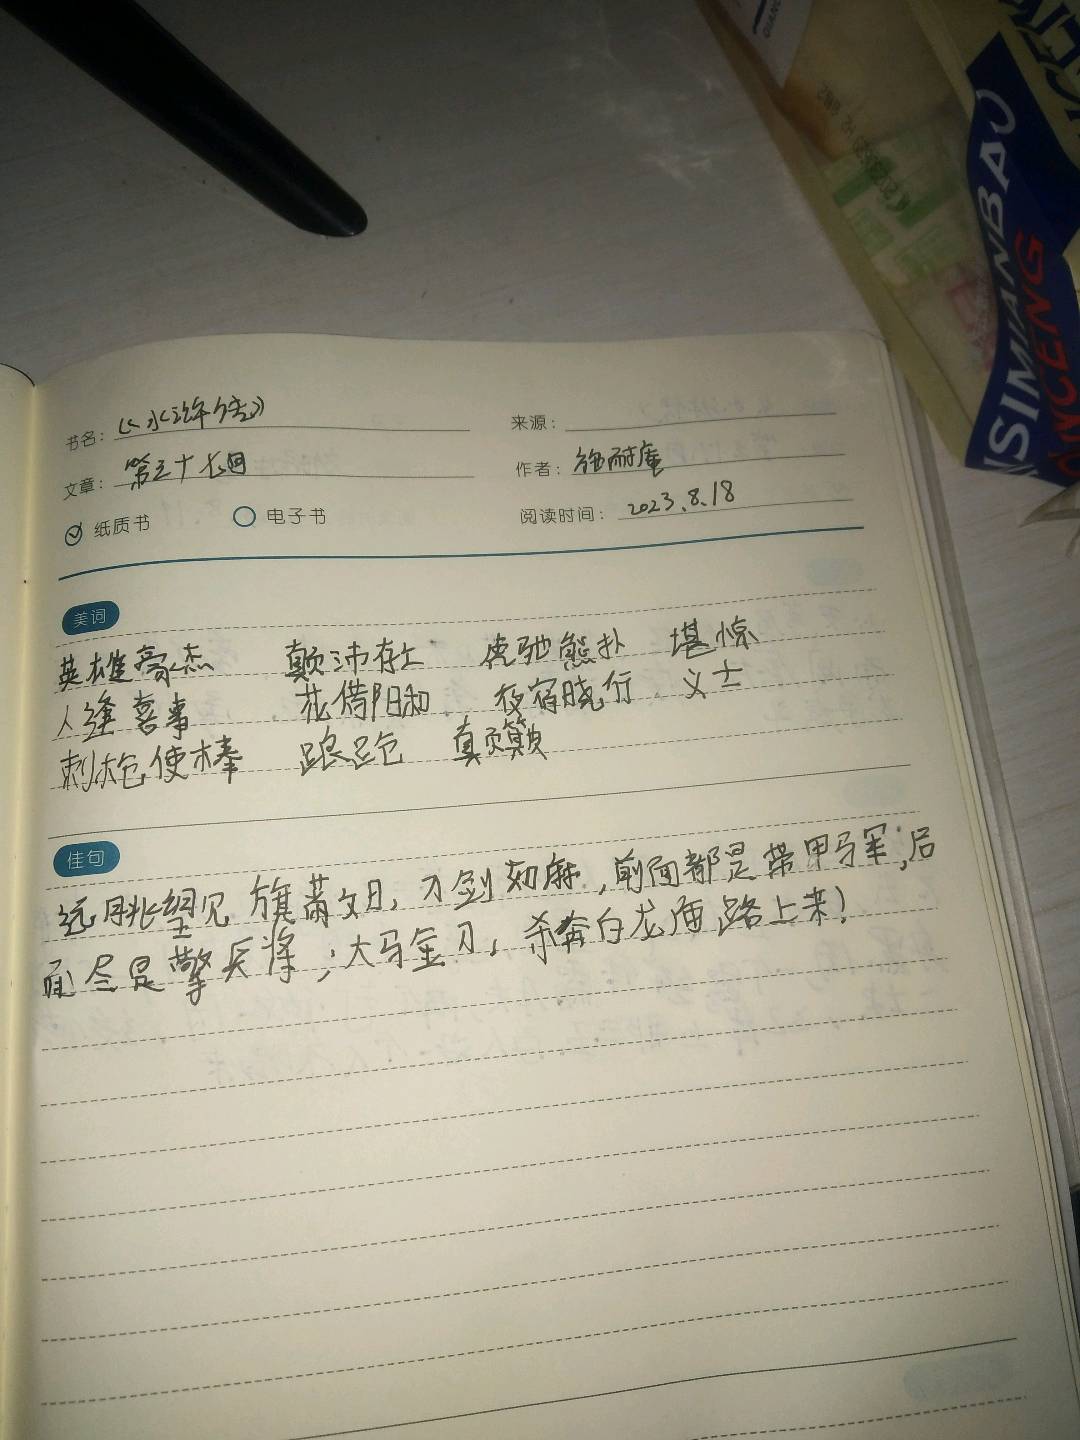 书名: 《水浒传》
来源:
文章: 第三十七回
作者: 施耐庵
纸质书 电子书
阅读时间: 2023.8.18
美词
英雄豪杰 颠沛存亡 虎驰熊扑 堪惊
人逢喜事 花借阳和 夜宿晓行 义士
刺枪使棒 踉跄
佳句
远眺望见旗蔽日,刀剑如麻,前面都是带甲马军;后
面尽是擎兵将;大马金刀,杀奔白龙庙路上来!
SIMIANBAO